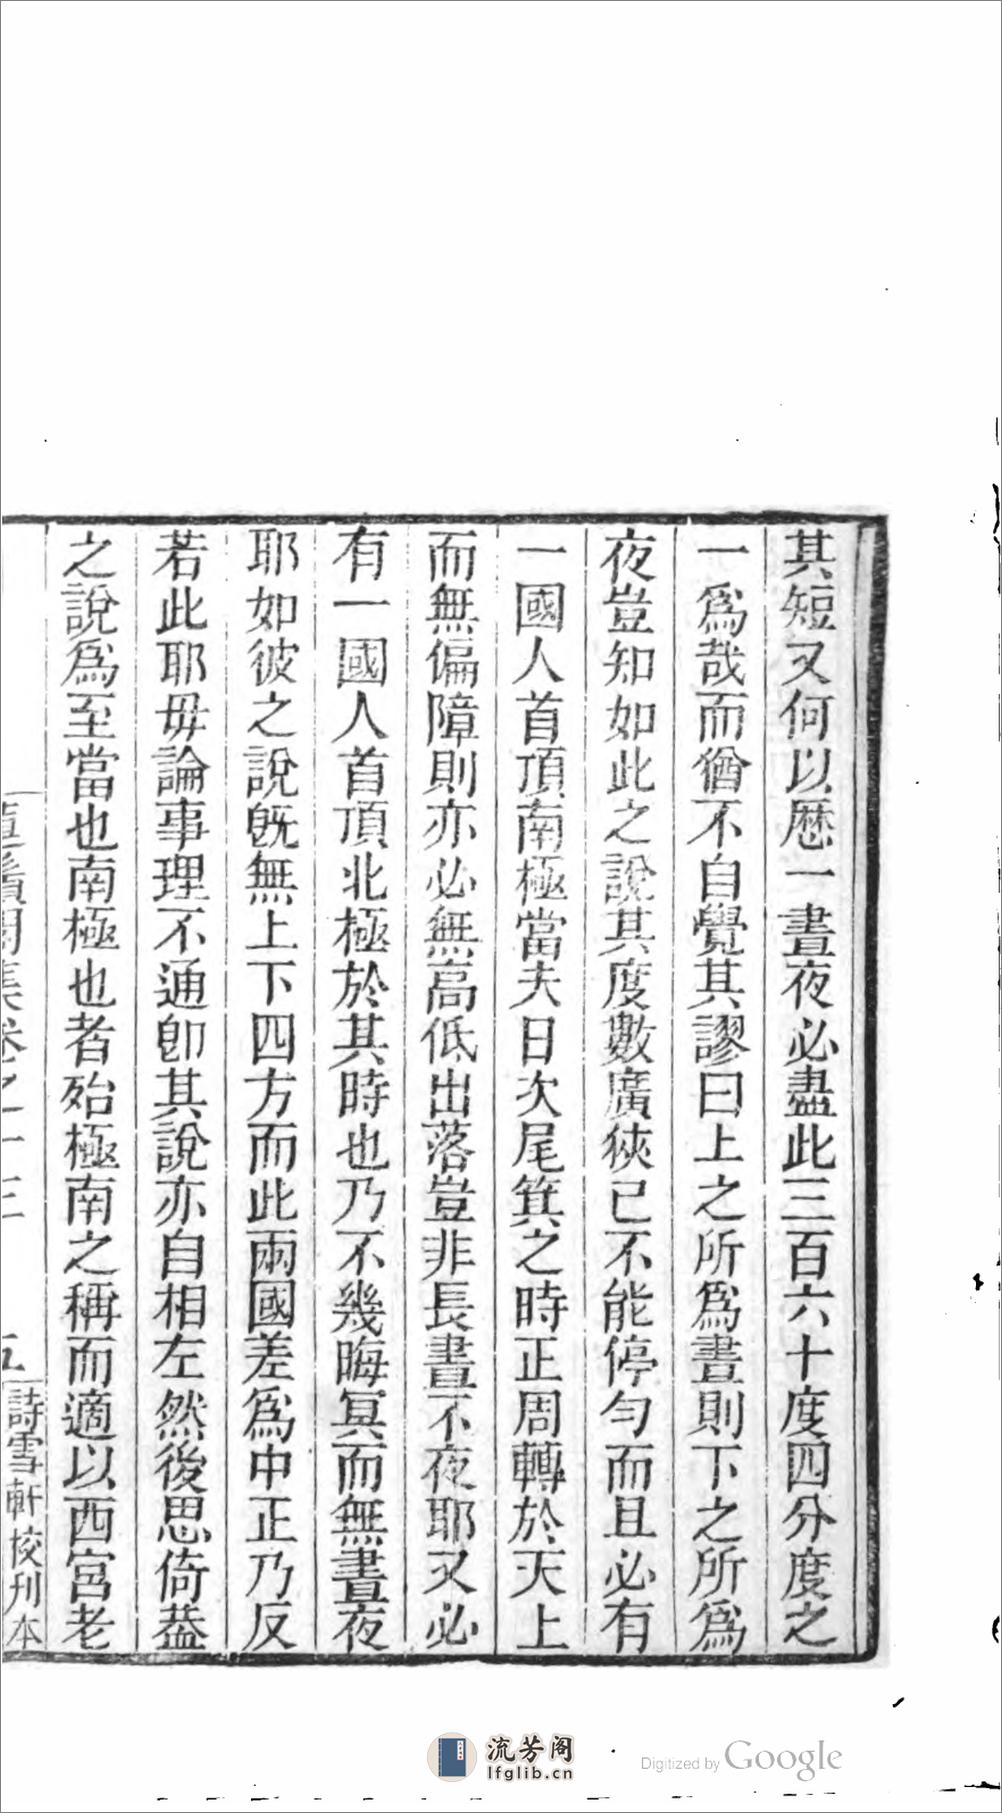 其短又何以歷一晝夜必盡此三百六十度四分度之
一爲哉而猶不自覺其謬曰上之所爲晝則下之所爲
夜豈知如此之說其度數廣狹已不能停勻而且必有
一國人首頂南極當夫日次尾箕之時正周轉於天上
而無偏障則亦必無高低出落豈非長晝不夜耶又必
有一國人首頂北極於其時也乃不幾晦冥而無晝夜
耶如彼之說旣無上下四方而此兩國差爲中正乃反
若此耶毋論事理不通卽其說亦自相左然後思倚葢
之說爲至當也南極也者殆極南之稱而適以西宮老
集卷之十三
五
詩雪軒校刋本
流芳阁
lfglib.cn
Digitized by Google